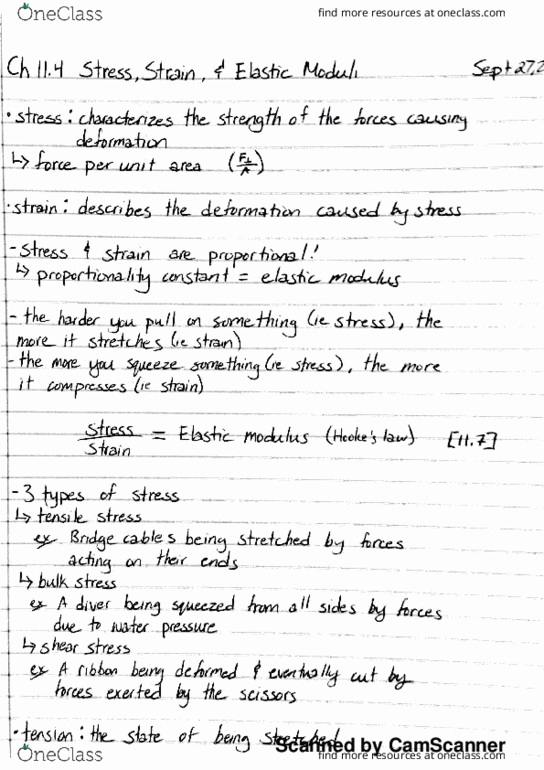 OneClass
find more resources at oneclass.com
Ch 11.4 Stress, Strain, & Elastic Moduli
Sept 27, 2
• stress: characterizes the strength of the forces causing
deformation
↳ force per unit area (F⊥/A)
• strain: describes the deformation caused by stress
- stress & strain are proportional!
↳ proportionality constant = elastic modulus
- the harder you pull on something (ie stress), the
more it stretches (ie strain)
- the more you squeeze something (ie stress), the more
it compresses (ie strain)
Stress/Strain = Elastic modulus (Hooke's law) [11.7]
- 3 types of stress
↳ tensile stress
ex Bridge cables being stretched by forces
acting on their ends
↳ bulk stress
ex A diver being squeezed from all sides by forces
due to water pressure
↳ shear stress
ex A ribbon being deformed & eventually cut by
forces exerted by the scissors
• tension: the state of being stretched
Scanned by CamScanner
OneClass
find more resources at oneclass.com